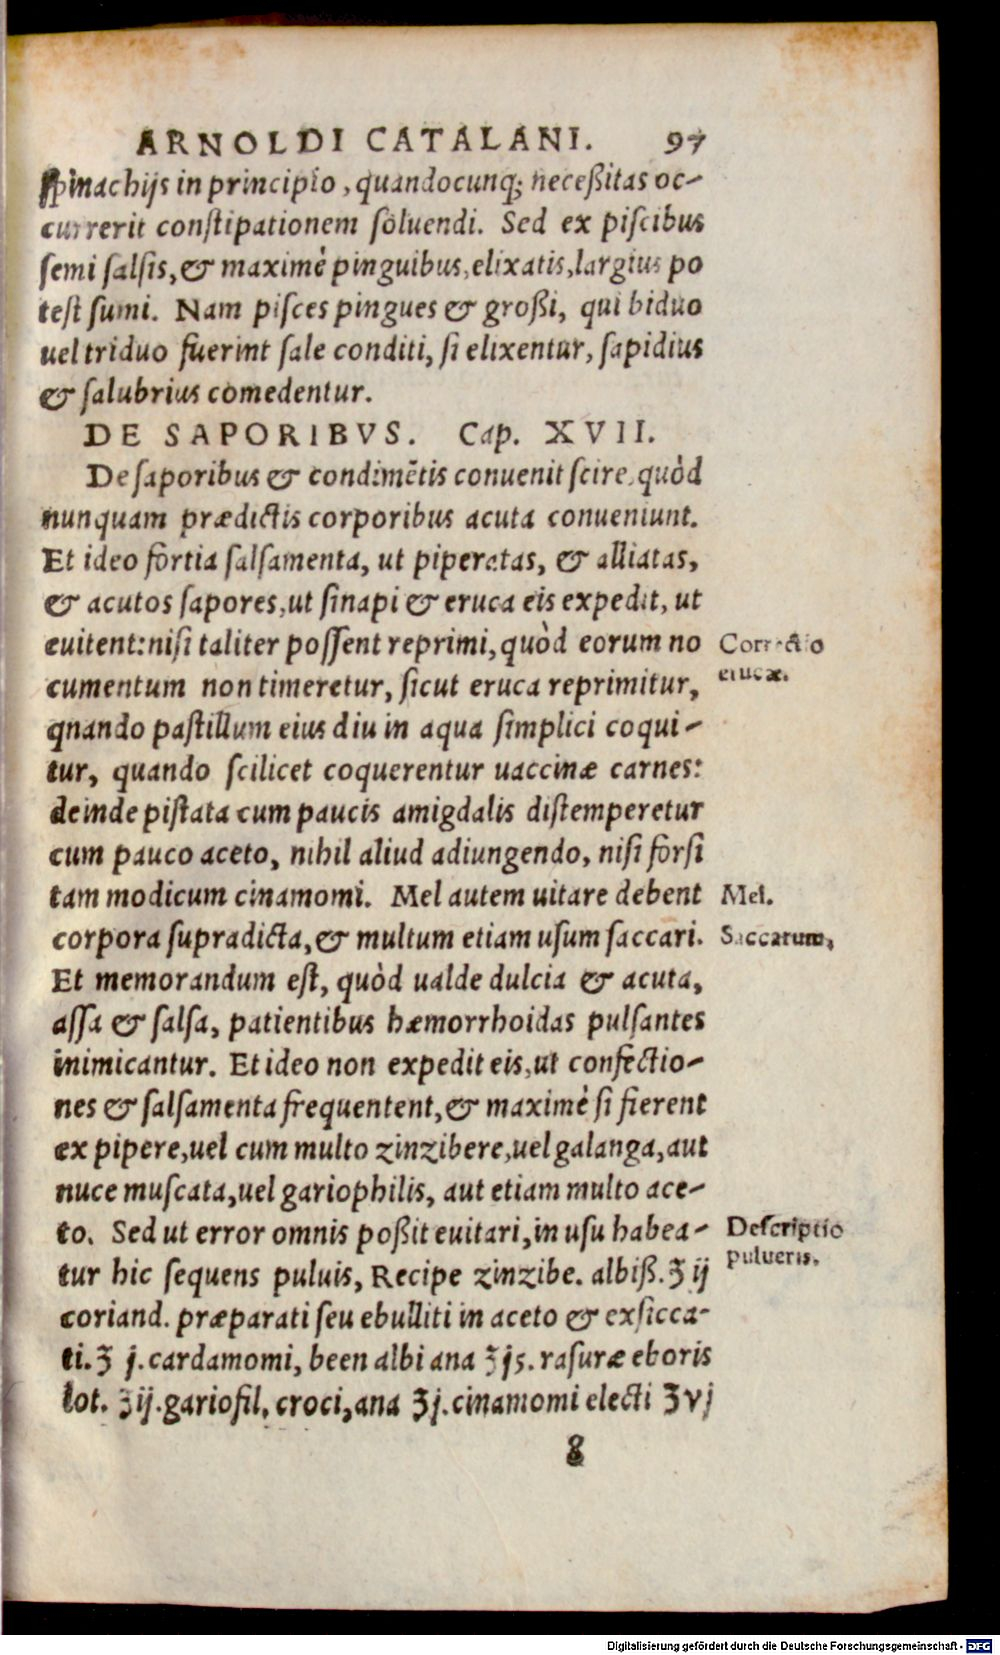 ARNOLDI CATALANI. 97
spinachijs in principio, quandocunq; neceßitas oc-
currerit constipationem soluendi. Sed ex piscibus
semi salsis, & maximè pinguibus, elixatis, largius po
test sumi. Nam pisces pingues & großi, qui biduo
uel triduo fuerint sale conditi, si elixentur, sapidius
& salubrius comedentur.
DE SAPORIBVS. Cap. XVII.
De saporibus & condimētis conuenit scire, quòd
nunquam prædictis corporibus acuta conueniunt.
Et ideo fortia salsamenta, ut piperatas, & alliatas,
& acutos sapores, ut sinapi & eruca eis expedit, ut
euitent: nisi taliter possent reprimi, quòd eorum no
Correctio
cumentum non timeretur, sicut eruca reprimitur,
erucæ.
qnando pastillum eius diu in aqua simplici coqui-
tur, quando scilicet coquerentur uaccinæ carnes:
deinde pistata cum paucis amigdalis distemperetur
cum pauco aceto, nihil aliud adiungendo, nisi forsi
tam modicum cinamomi. Mel autem uitare debent
Mel.
corpora supradicta, & multum etiam usum saccari.
Saccarum,
Et memorandum est, quòd ualde dulcia & acuta,
assa & salsa, patientibus hæmorrhoidas pulsantes
inimicantur. Et ideo non expedit eis, ut confectio-
nes & salsamenta frequentent, & maximè si fierent
ex pipere, uel cum multo zinzibere, uel galanga, aut
nuce muscata, uel gariophilis, aut etiam multo ace-
to. Sed ut error omnis poßit euitari, in usu habea-
Descriptio
pulueris.
tur hic sequens puluis, Recipe zinzibe. albiß. ʒ ij
coriand. præparati seu ebulliti in aceto & exsicca-
ti. ʒ j. cardamomi, been albi ana ʒjs. rasuræ eboris
lot. ʒij. gariofil. croci, ana ʒj. cinamomi electi ʒvj
8
Digitalisierung gefördert durch die Deutsche Forschungsgemeinschaft - DFG